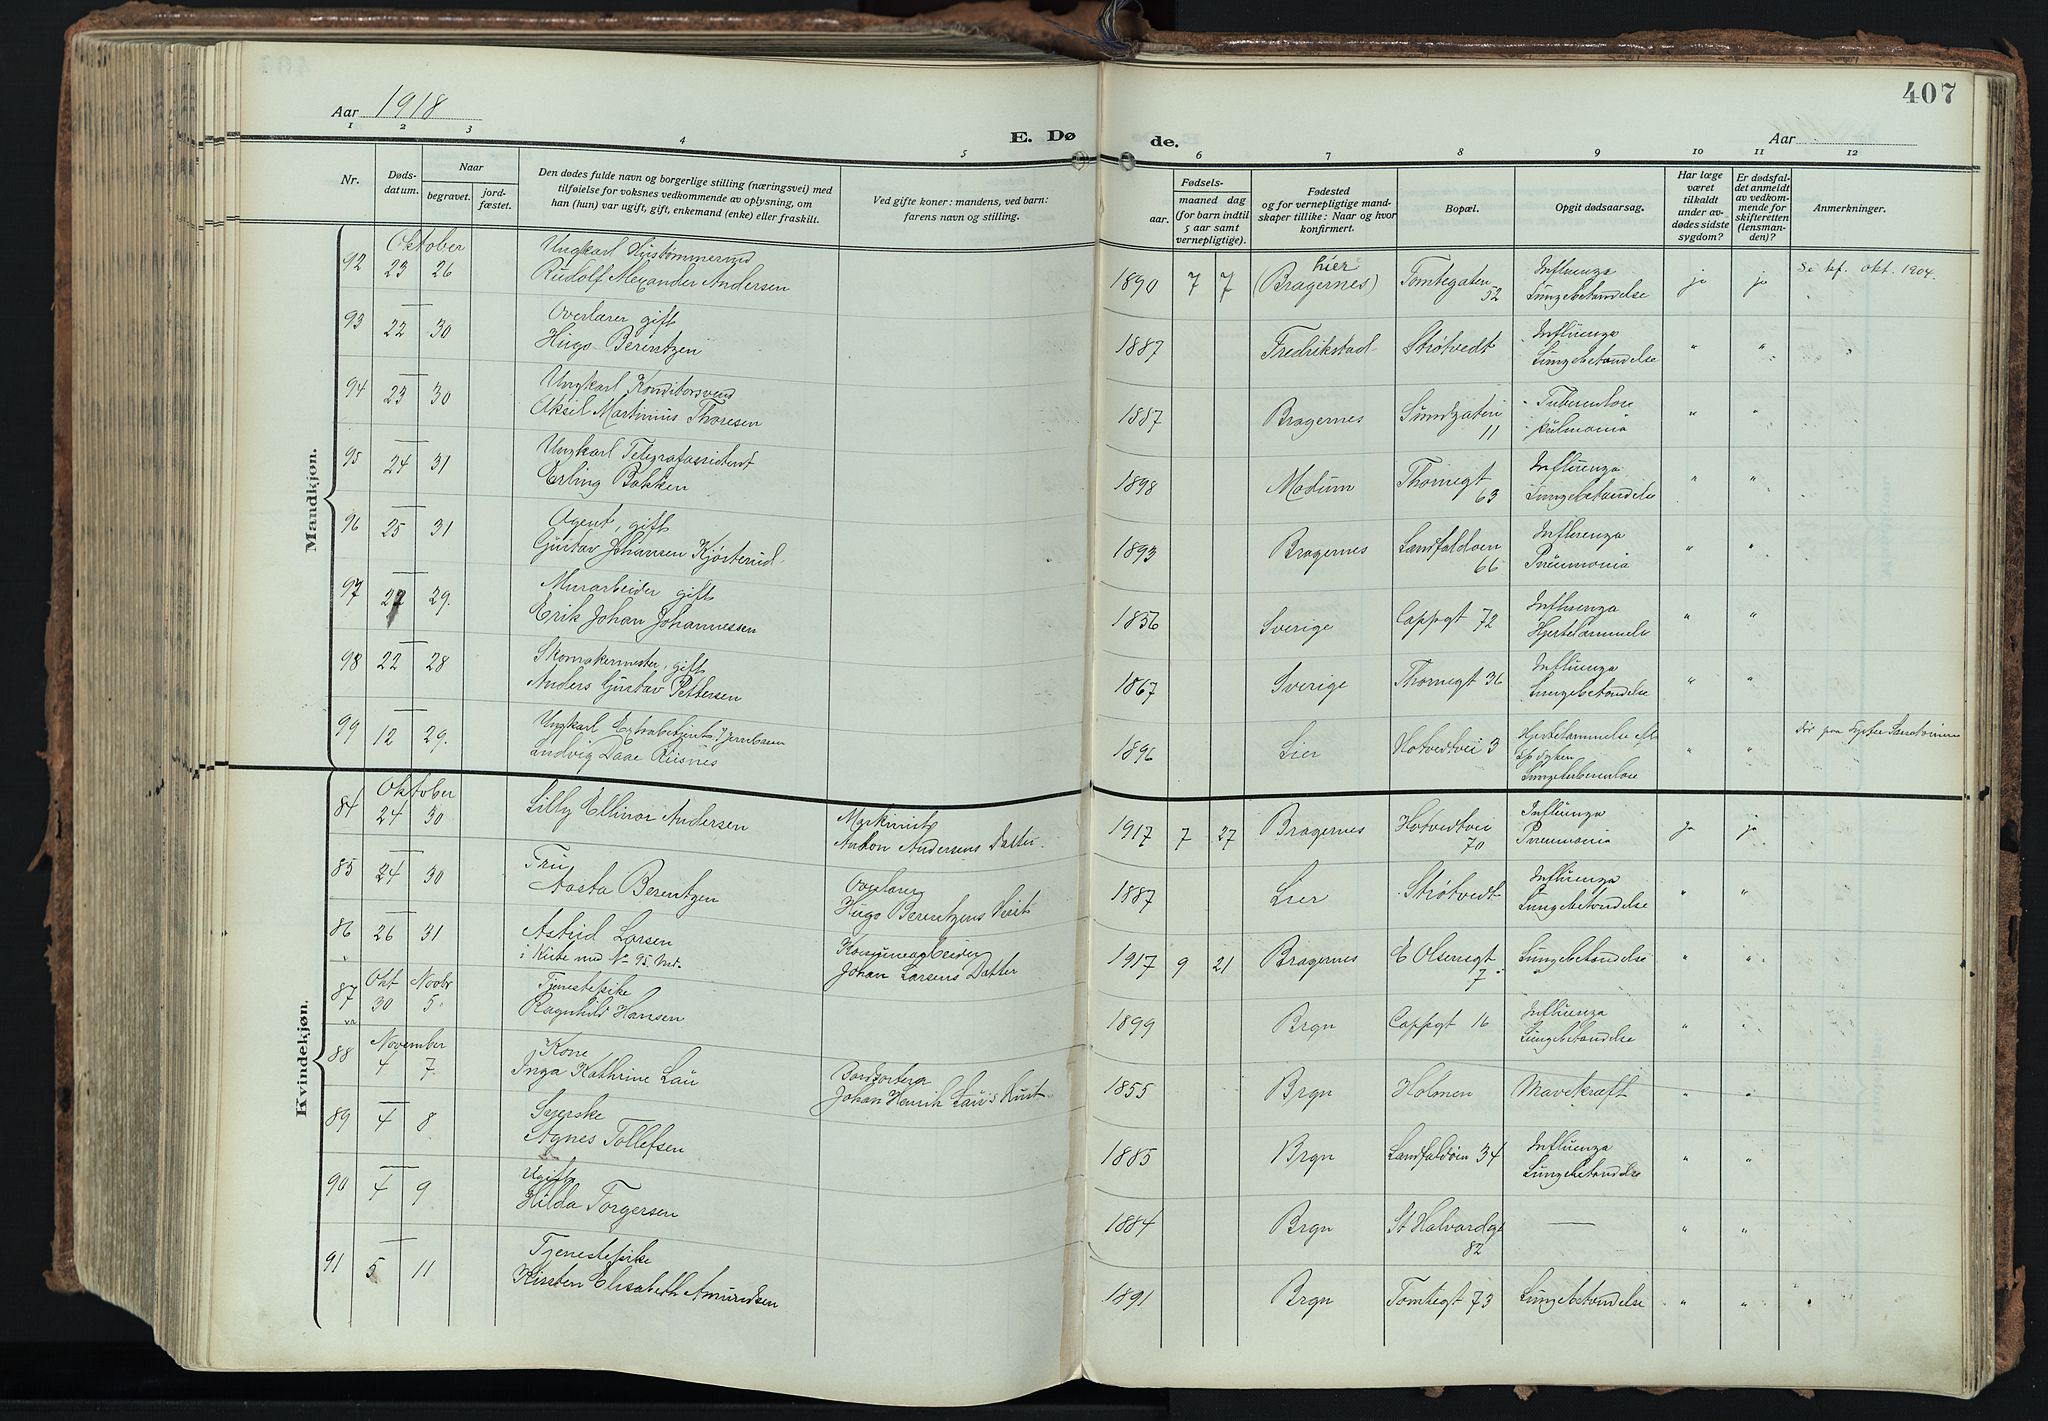 407
Aar 1918
Aar
E. Dø
de.
1 2 3 4 5
6 7 8 9 10 11 12
Nr.
Døds-
datum.
Naar
begravet.
jord-
fæstet.
Den dødes fulde navn og borgerlige stilling (næringsvei) med
tilføielse for voksnes vedkommende av oplysning, om
han (hun) var ugift, gift, enkemand (enke) eller fraskilt.
Ved gifte koner: mandens, ved barn:
farens navn og stilling.
Fødsels-
aar.
maaned dag
(for barn indtil
5 aar samt
vernepligtige).
Fødested
og for vernepligtige mand-
skaper tillike: Naar og hvor
konfirmert.
Bopæl.
Opgit dødsaarsag.
Har læge
været
tilkaldt
under av-
dødes sidste
sygdom?
Er dødsfal-
det anmeldt
av vedkom-
mende for
skifteretten
(lensman-
den)?
Anmerkninger.
Mandkjøn.
Oktober
Ungkarl
hier
Influenza
Se kf. okt. 1904.
92 23 26 Rudolf Alexander Andersen 1890 7 7 (Bragernes) Tomtegaten ja ja
52 Lungebetændelse
93 22 30 Overlærer gift Influenza
Hugo Berentzen 1887 Fredrikstad Strøtvedt " "
Lungebetændelse
94 23 30 Ungkarl Konditorsvend
Aksil Martinius Thoresen 1887 Bragernes Sundgaten " "
11 pulmonia
95 24 31 Ungkarl Telegrafassistent Influenza
Erling Bakken 1898 Modum Thornegt " "
63 Lungebetændelse
96 25 31 Agent, gift Influenza
Gustav Johansen Kjøsterud 1893 Bragernes Landfaldøen " "
66 Pneumonia
97 22 29. Murarbeider gift Influenza
Erik Johan Johannessen 1836 Sverige Cappgt 72 " "
Hjertelammelse
98 22 28 Skomakermester, gift Influenza
Anders Gustav Pettersen 1867 Sverige Thornegt 36 " "
Lungebetændelse
99 12 29. Ungkarl Extrabetjent Hjertelammelse
Ludvig Daae Riisnes 1896 Lier Hotvedtvei 3 " "
Kvindekjøn.
Oktober
84 24 30 Lilly Ellinor Andersen 1917 7 27 Bragernes Hotvedtvei Influenza ja ja
Anton Andersens Datter. 70 Pneumonia
85 24 30 Fru Overlærer Influenza
Aasta Berentzen Hugo Berentzens 1887 Lier Strøtvedt Lungebetændelse " "
86 26 31 Astrid Larsen 1917 9 21 Bragernes E Olsensgt Lungebetændelse " "
i Kiste med No 95 Johan Larsens Datter 7
87 Okt Novbr Tjenestepike Influenza
30 5 Ragnhild Hansen 1899 Brgn Cappgt 16 " "
Lungebetændelse
November
88 4 7 Kone
Inga Kathrine Lau Johan Henrik Lau's 1855 Brgn Holmen Mavekræft " "
89 4 8 Syerske Influenza
Agnes Tollefsen 1885 Brgn Landfaldøen 34 " "
Lungebetændelse
90 4 9 Ugift
Hilda Torgersen 1884 Brgn St Halvardgt — " "
82
91 5 11 Tjenestepike
Kirsten Elisabeth Amundsen 1891 Brgn Tomtegt 73 Lungebetændelse " "